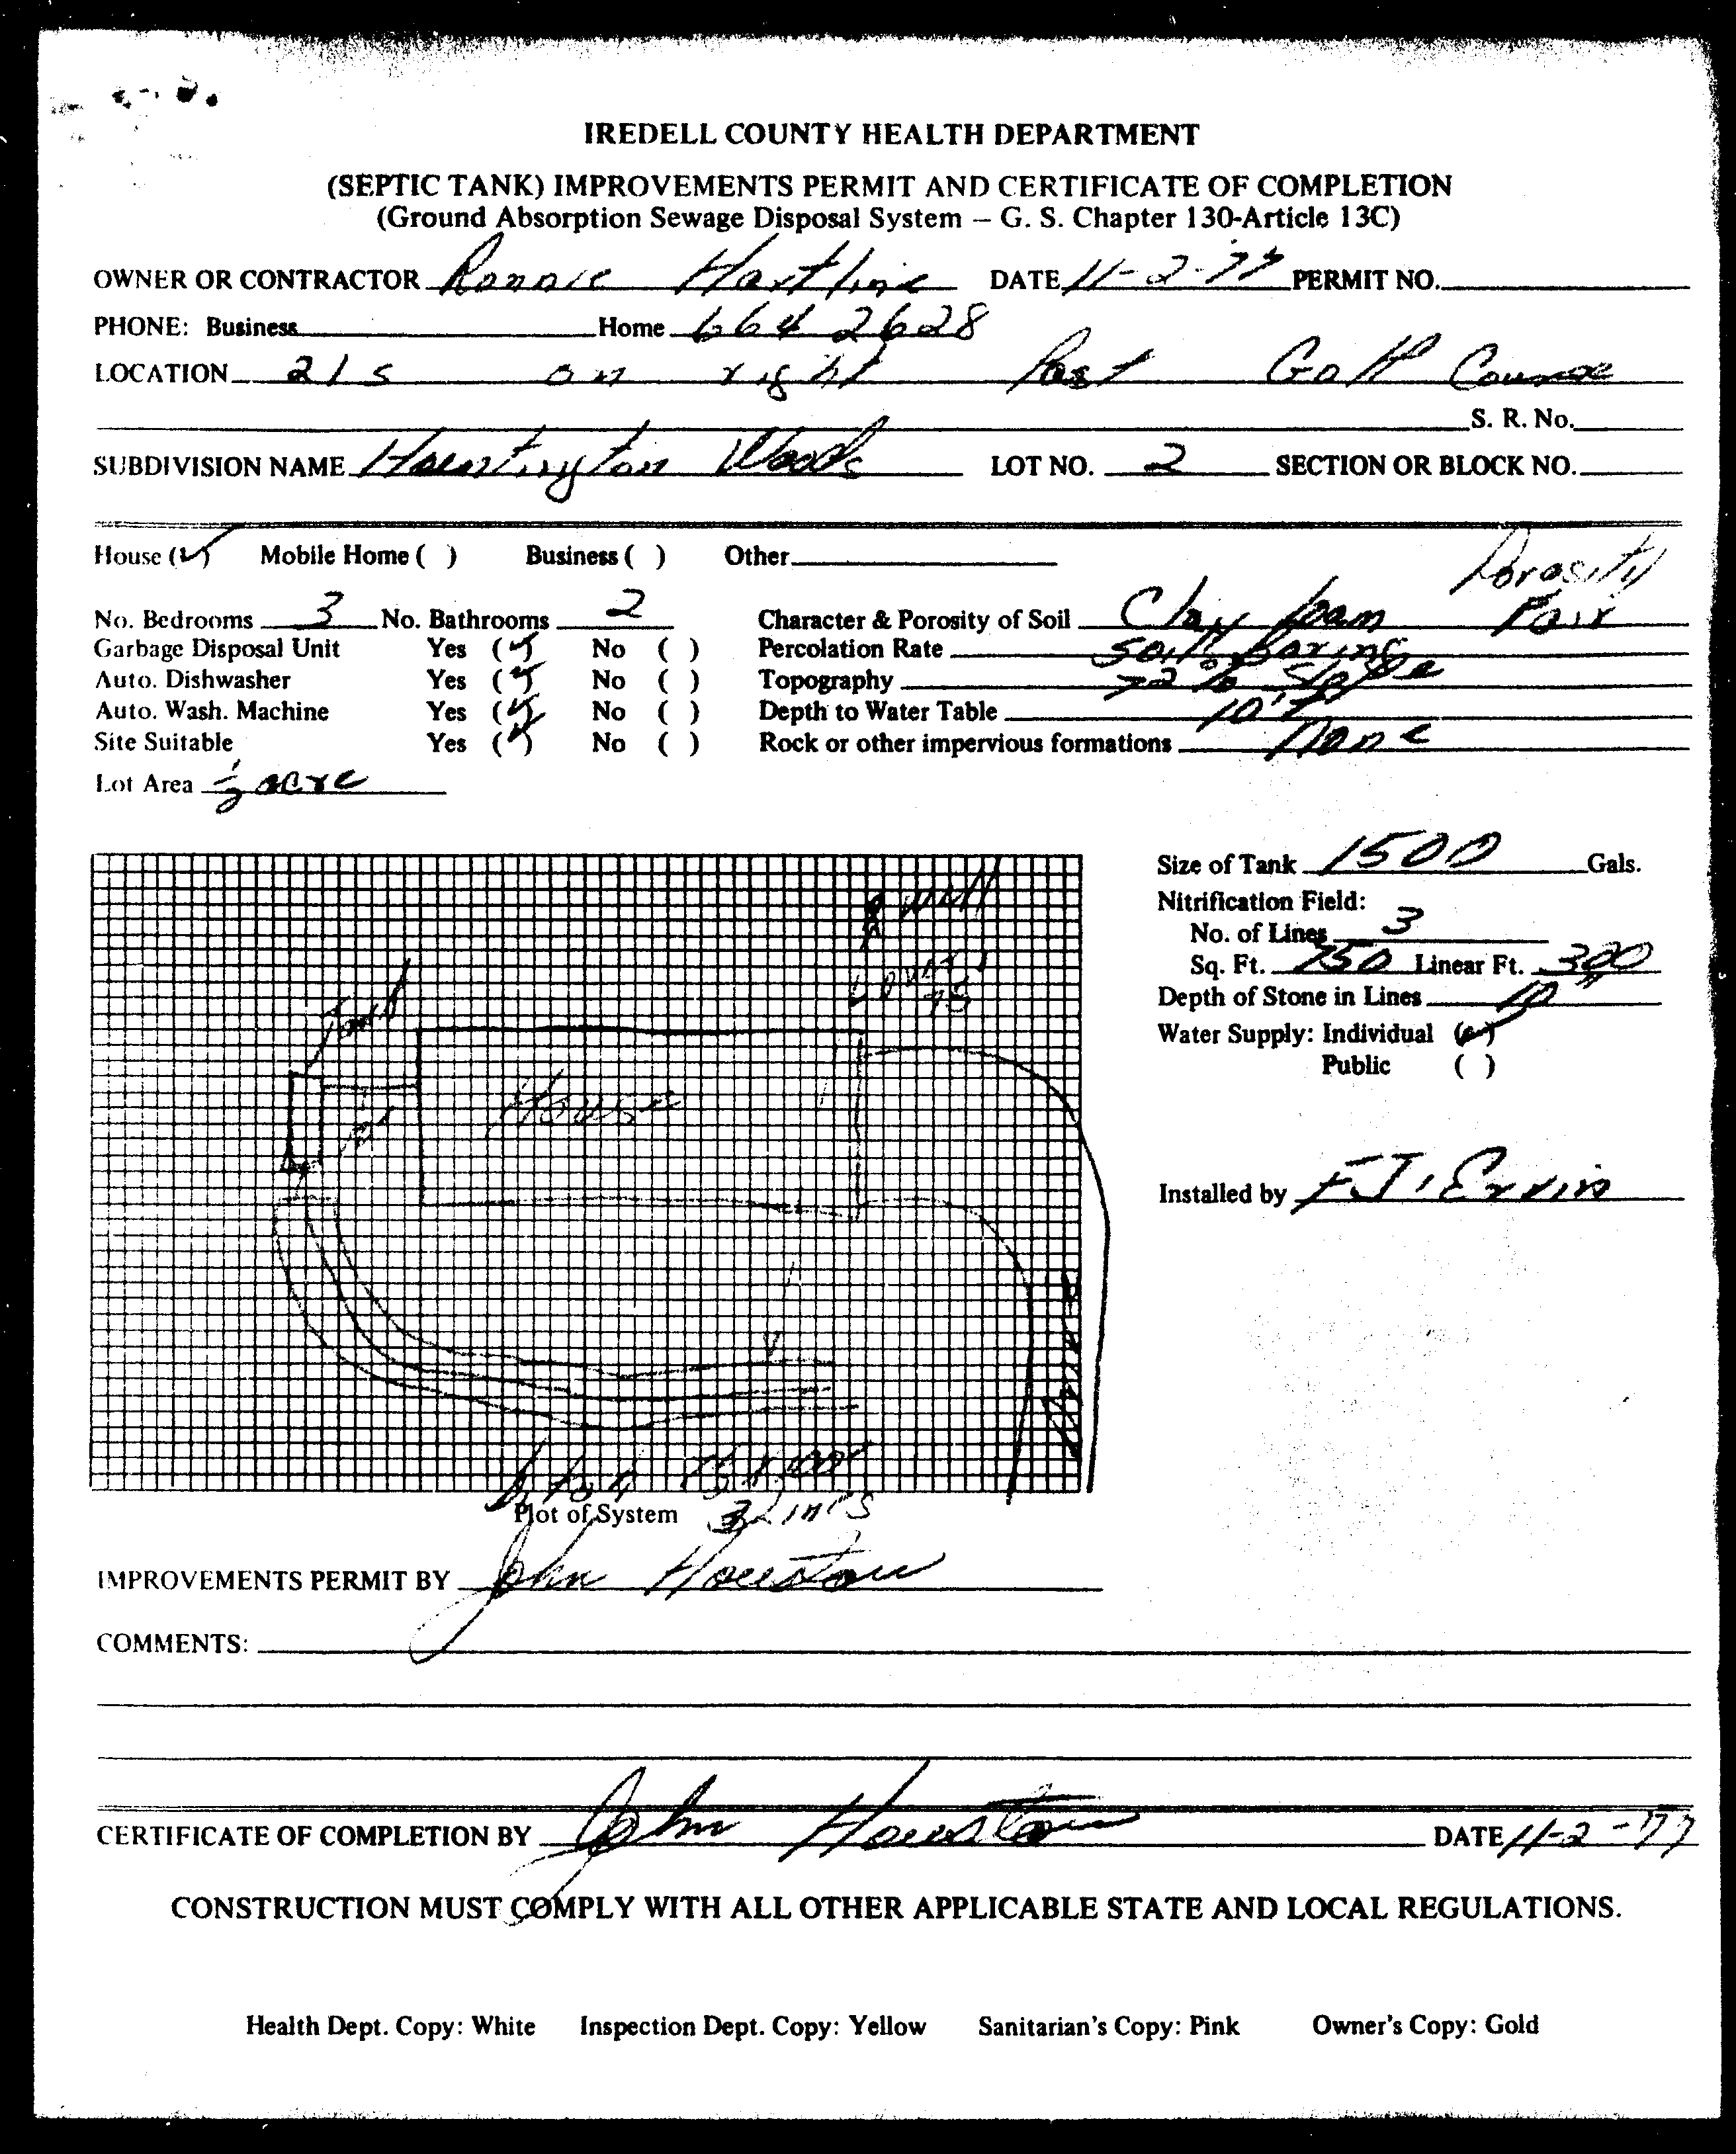 IREDELL COUNTY HEALTH DEPARTMENT
(SEPTIC TANK) IMPROVEMENTS PERMIT AND CERTIFICATE OF COMPLETION
(Ground Absorption Sewage Disposal System – G. S. Chapter 130-Article 13C)
OWNER OR CONTRACTOR Ronnie Hartline DATE 11-2-77 PERMIT NO.
PHONE: Business Home 664 2628
LOCATION 21 S on right Past Golf Course
S. R. No.
SUBDIVISION NAME Huntington Woods LOT NO. 2 SECTION OR BLOCK NO.
House (✓) Mobile Home ( ) Business ( ) Other
Porosity
No. Bedrooms 3 No. Bathrooms 2 Character & Porosity of Soil Clay loam Fair
Garbage Disposal Unit Yes (✓) No ( ) Percolation Rate Soil Boring
Auto. Dishwasher Yes (✓) No ( ) Topography >2% Slope
Auto. Wash. Machine Yes (✓) No ( ) Depth to Water Table 10'+
Site Suitable Yes (✓) No ( ) Rock or other impervious formations None
Lot Area ½ acre
Size of Tank 1500 Gals.
Nitrification Field:
No. of Lines 3
Sq. Ft. 750 Linear Ft. 300
Depth of Stone in Lines 10"
Water Supply: Individual (✓)
Public ( )
Well
75'
Tank
House
Installed by F.J. Ervin
Drive
Plot of System 3 Lines
IMPROVEMENTS PERMIT BY John Houston
COMMENTS:
CERTIFICATE OF COMPLETION BY John Houston DATE 11-2-77
CONSTRUCTION MUST COMPLY WITH ALL OTHER APPLICABLE STATE AND LOCAL REGULATIONS.
Health Dept. Copy: White Inspection Dept. Copy: Yellow Sanitarian's Copy: Pink Owner's Copy: Gold